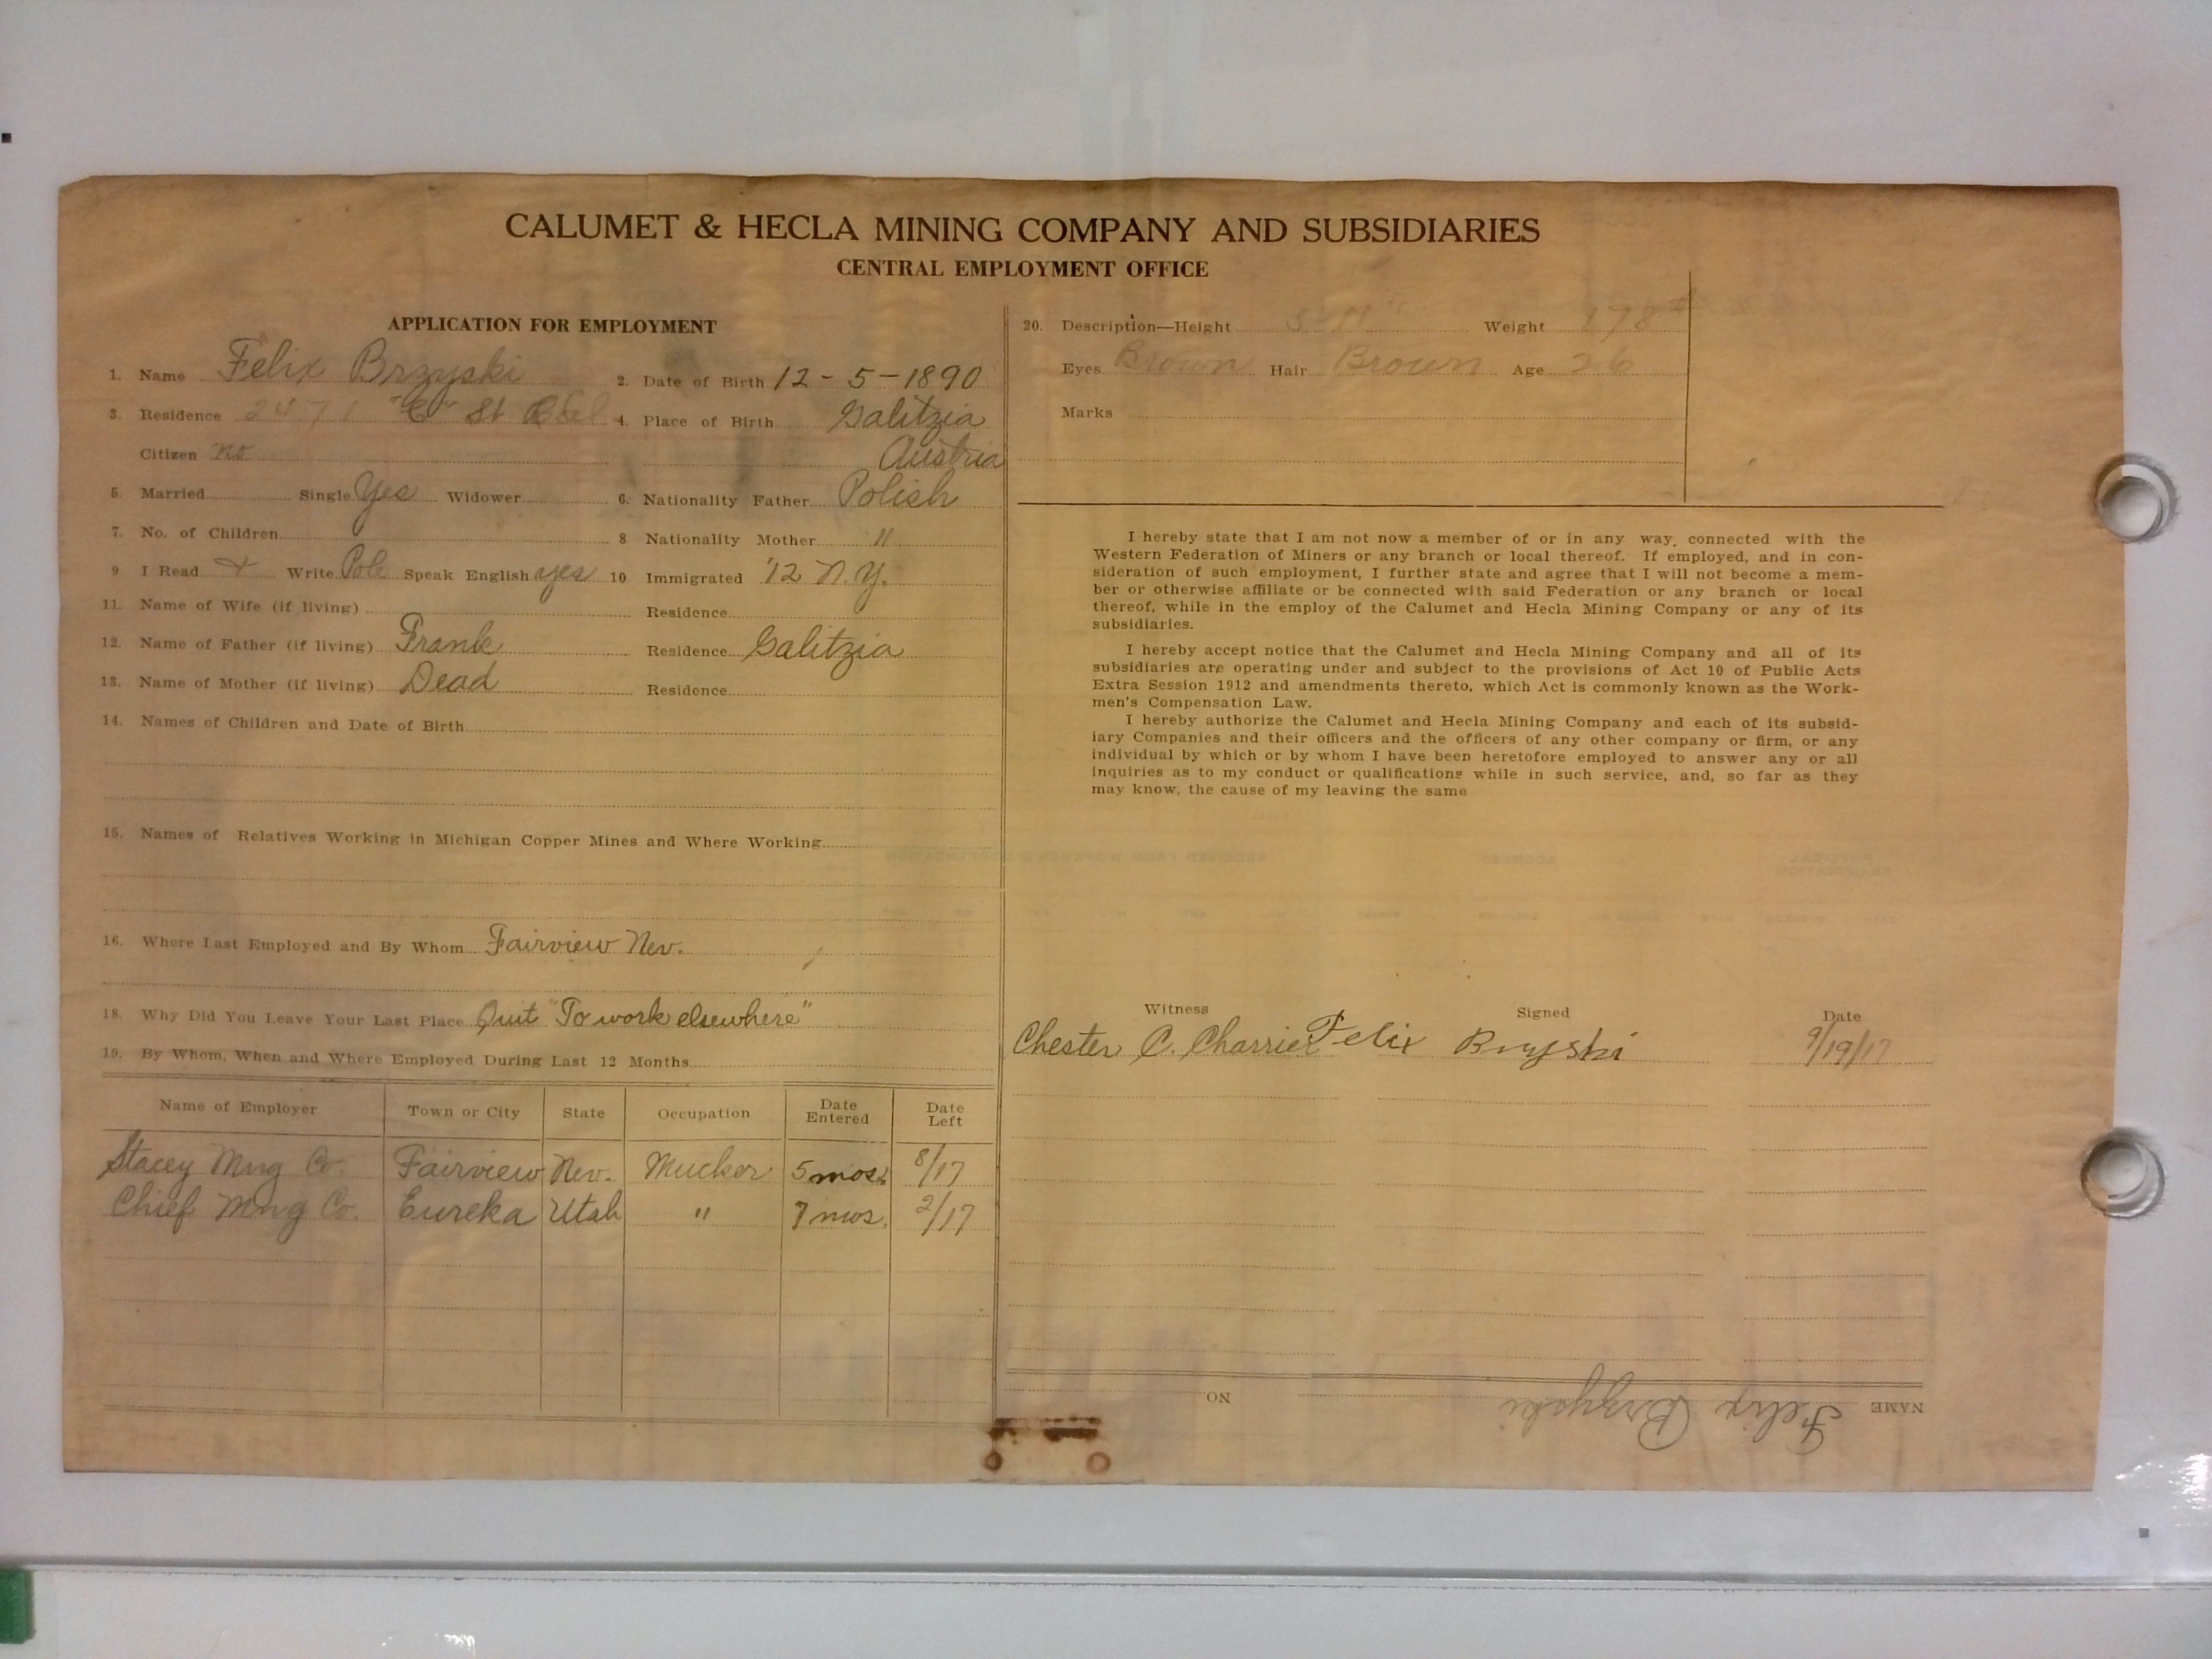 CALUMET & HECLA MINING COMPANY AND SUBSIDIARIES
CENTRAL EMPLOYMENT OFFICE
APPLICATION FOR EMPLOYMENT
1. Name Felix Brzyski 2. Date of Birth 12-5-1890
3. Residence 2471 "C" St 4. Place of Birth Galitzia
Citizen no Austria
5. Married Single Yes Widower 6. Nationality Father Polish
7. No. of Children 8 Nationality Mother "
9 I Read + Write Pole Speak English yes 10 Immigrated '12 N.Y.
11. Name of Wife (if living) Residence
12. Name of Father (if living) Frank Residence Galitzia
13. Name of Mother (if living) Dead Residence
14. Names of Children and Date of Birth
15. Names of Relatives Working in Michigan Copper Mines and Where Working
16. Where Last Employed and By Whom Fairview Nev.
18. Why Did You Leave Your Last Place Quit "To work elsewhere"
19. By Whom, When and Where Employed During Last 12 Months
Name of Employer Town or City State Occupation Date Entered Date Left
Stacey Mng Co. Fairview Nev. Mucker 5 mos. 8/17
Chief Mng Co. Eureka Utah " 7 mos. 2/17
20. Description—Height 5' 11" Weight 178#
Eyes Brown Hair Brown Age 26
Marks
I hereby state that I am not now a member of or in any way, connected with the
Western Federation of Miners or any branch or local thereof. If employed, and in con-
sideration of such employment, I further state and agree that I will not become a mem-
ber or otherwise affiliate or be connected with said Federation or any branch or local
thereof, while in the employ of the Calumet and Hecla Mining Company or any of its
subsidiaries.
I hereby accept notice that the Calumet and Hecla Mining Company and all of its
subsidiaries are operating under and subject to the provisions of Act 10 of Public Acts
Extra Session 1912 and amendments thereto, which Act is commonly known as the Work-
men's Compensation Law.
I hereby authorize the Calumet and Hecla Mining Company and each of its subsid-
iary Companies and their officers and the officers of any other company or firm, or any
individual by which or by whom I have been heretofore employed to answer any or all
inquiries as to my conduct or qualifications while in such service, and, so far as they
may know, the cause of my leaving the same
Witness Signed Date
Chester C. Charrier Felix Brzyski 9/19/17
NAME Felix Brzyski NO